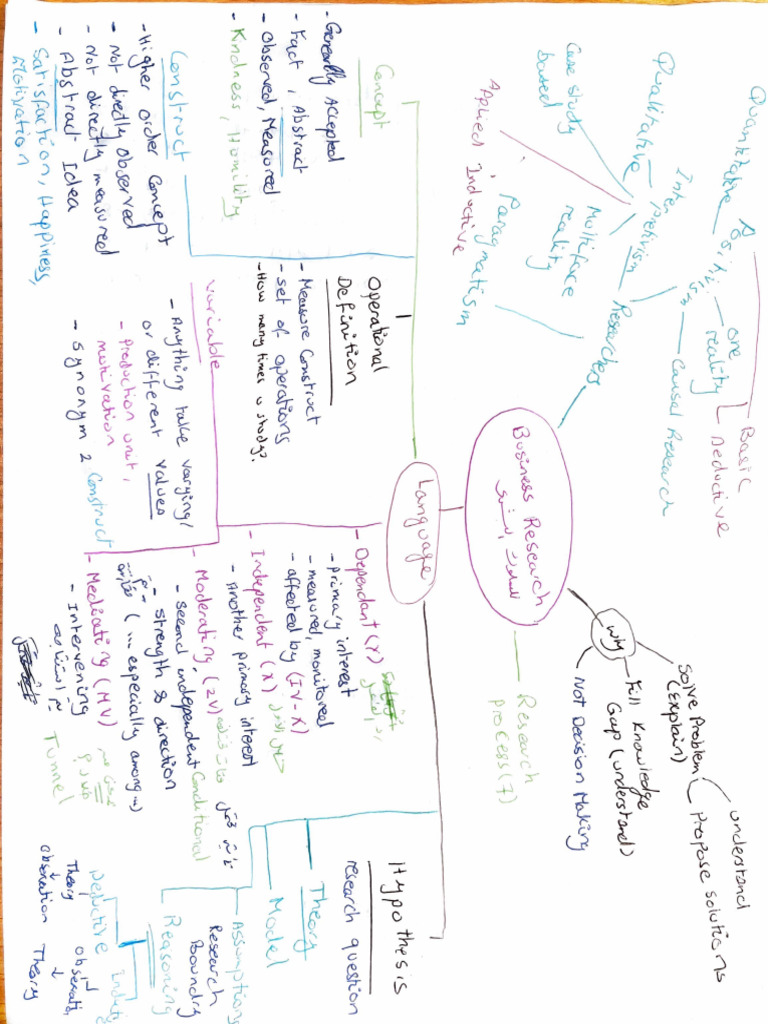 Business Research
Why
Solve Problem
(Explain)
understand
Propose solutions
Fill Knowledge
Gap (understand)
Not Decision Making
Research
Process (7)
Researches
Positivism
Quantitative
one
reality
Basic
Deductive
Causal Research
Interpretivism
Qualitative
Case study
based
Multiface
reality
Applied Inductive
Paragmatism
Language
Concept
- Generally Accepted
- Fact, Abstract
- Observed, Measured
- Kindness, Humility
Construct
- Higher order Concept
- Not directly Observed
- Not directly measured
- Abstract Idea
- Satisfaction, Happiness,
Motivation
Operational
Definition
- Measure Construct
- set of operations
- How many times u study?
Variable
- Anything take varying/
or different values
- Production unit,
motivation
- Synonym 2 Construct
- Dependant (Y)
- primary interest
- measured, monitored
- affected by (IV-X)
- Independent (X)
- Another primary interest
- Moderating (2V)
- second independent Conditional
- strength & direction
( ... especially among ...)
- Mediating (MV)
- Intervening
Tunnel
Hypothesis
research question
Theory
Model
Assumptions
Research
Boundry
Reasoning
Deductive
Theory
↓
Observation
Observati
↓
Theory